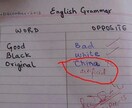 English Grammar
WORD OPPOSITE
Good Bad
Black White
Original China